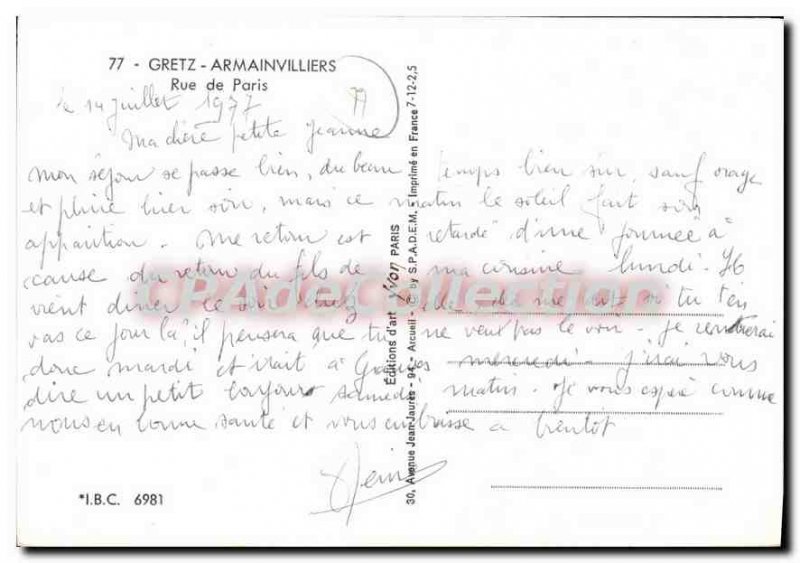 77 - GRETZ-ARMAINVILLIERS
Rue de Paris
le 14 juillet 1977
77
Ma chère petite Jeanne
Mon séjour se passe bien, du beau temps bien sûr, sauf orage
et pluie hier soir, mais ce matin le soleil fait son
apparition. Me retour est retardé d'une journée à
cause du retour du fils de ma cousine lundi.
vient diner ce soir chez si tu t'en
vas ce jour là, il pensera que tu ne veut pas le voir. Je rentrerai
donc mardi et irait à mercredi. J'irai vous
dire un petit bonjour samedi matin. Je vous espère comme
nous en bonne santé et vous embrasse a bientôt
Editions d'art Yvon PARIS
30, Avenue Jean-Jaurès - 94 - Arcueil - by S.P.A.D.E.M. - Imprimé en France 7-12-2,5
CPAdeCollection
*I.B.C. 6981